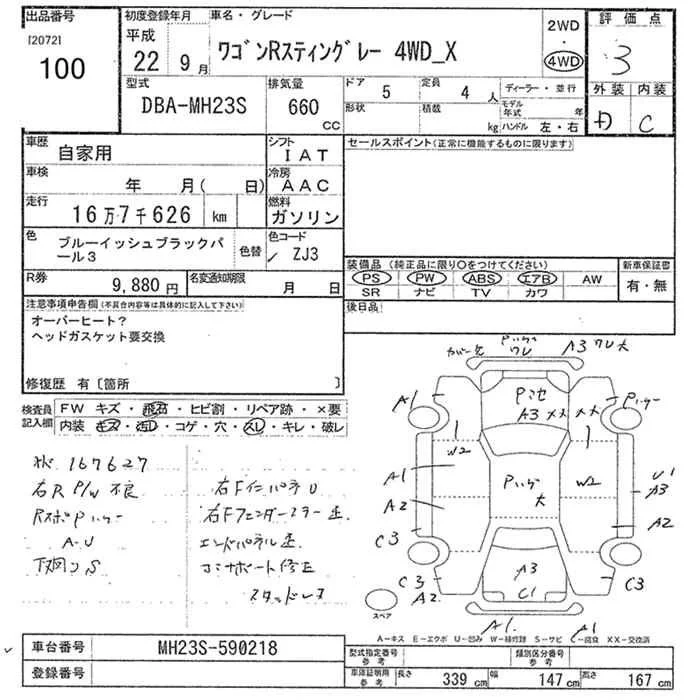 出品番号
[2072]
100
初度登録年月
平成
22年 9月
車名・グレード
ワゴンRスティングレー 4WD_X
2WD
・
4WD
評価点
3
外装 内装
D C
型式
DBA-MH23S
排気量
660
CC
ドア
5
定員
4
人
形状
積載
kg
ディーラー・並行
モデル年式
年
ハンドル 左・右
車歴
自家用
シフト
IAT
車検
年 月( 日)
冷房
AAC
走行
16万7千626 km
燃料
ガソリン
色
ブルーイッシュブラックパール3
色替
色コード
ZJ3
R券
9,880円
名変通知期限
月 日
セールスポイント(正常に機能するものに限ります)
装備品 (純正品に限り○をつけてください)
PS PW ABS エアB AW
SR ナビ TV カワ
新車保証書
有・無
後日品
注意事項申告欄(不具合内容等は具体的に記入して下さい)
オーバーヒート?
ヘッドガスケット要交換
修復歴 有〔箇所 〕
検査員記入欄
FW キズ・飛石・ヒビ割・リペア跡・×要
内装 キズ・汚レ・コゲ・穴・スレ・キレ・破レ
状 167627
右R P/W 不良
A-U
右Fフェンダー
エンドパネル
コアサポート修正
スタッドレス
A3
A1
A3
W2
W2
A1
A2
C3
C3
A2
U1
A3
A2
C3
A3
C1
A1
A1
スペア
A-キス E-エクボ U-凹み W-補修跡 S-サビ C-腐食 XX-交換済
車台番号
MH23S-590218
登録番号
型式指定番号
参考
類別区分番号
参考
車庫証明用
参考
長さ 339 cm 幅 147 cm 高さ 167 cm